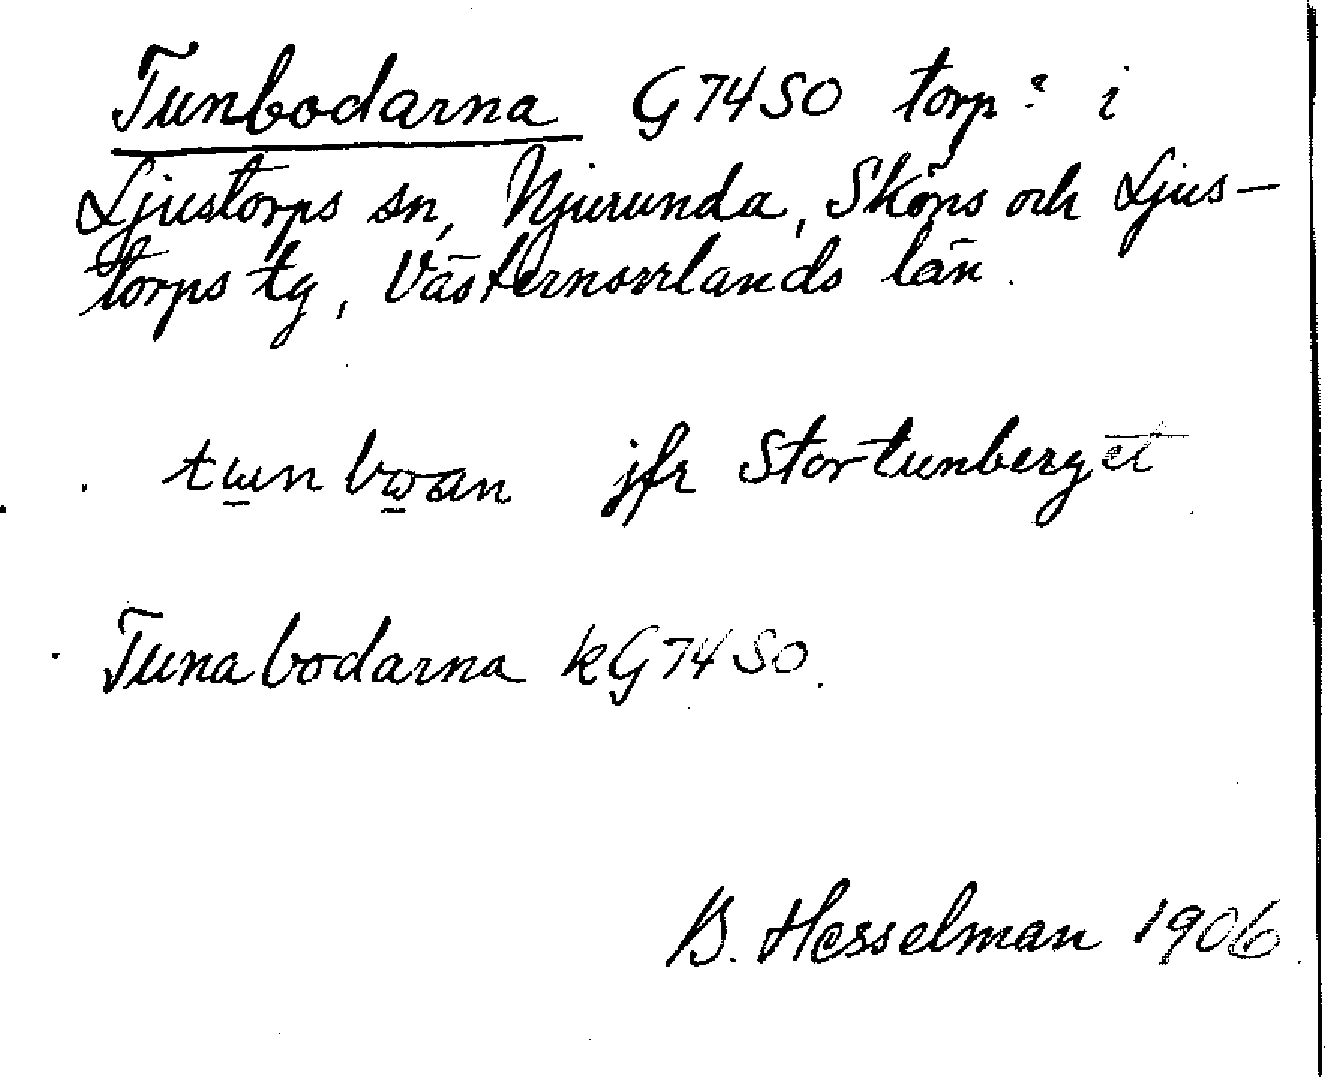 Tunbodarna G74SO torp? i
Ljustorps sn, Njurunda, Sköns och Ljus-
torps tg, Västernorrlands län.
tɯnbɷan jfr Stortunberget
Tunabodarna kG74SO.
B. Hesselman 1906.